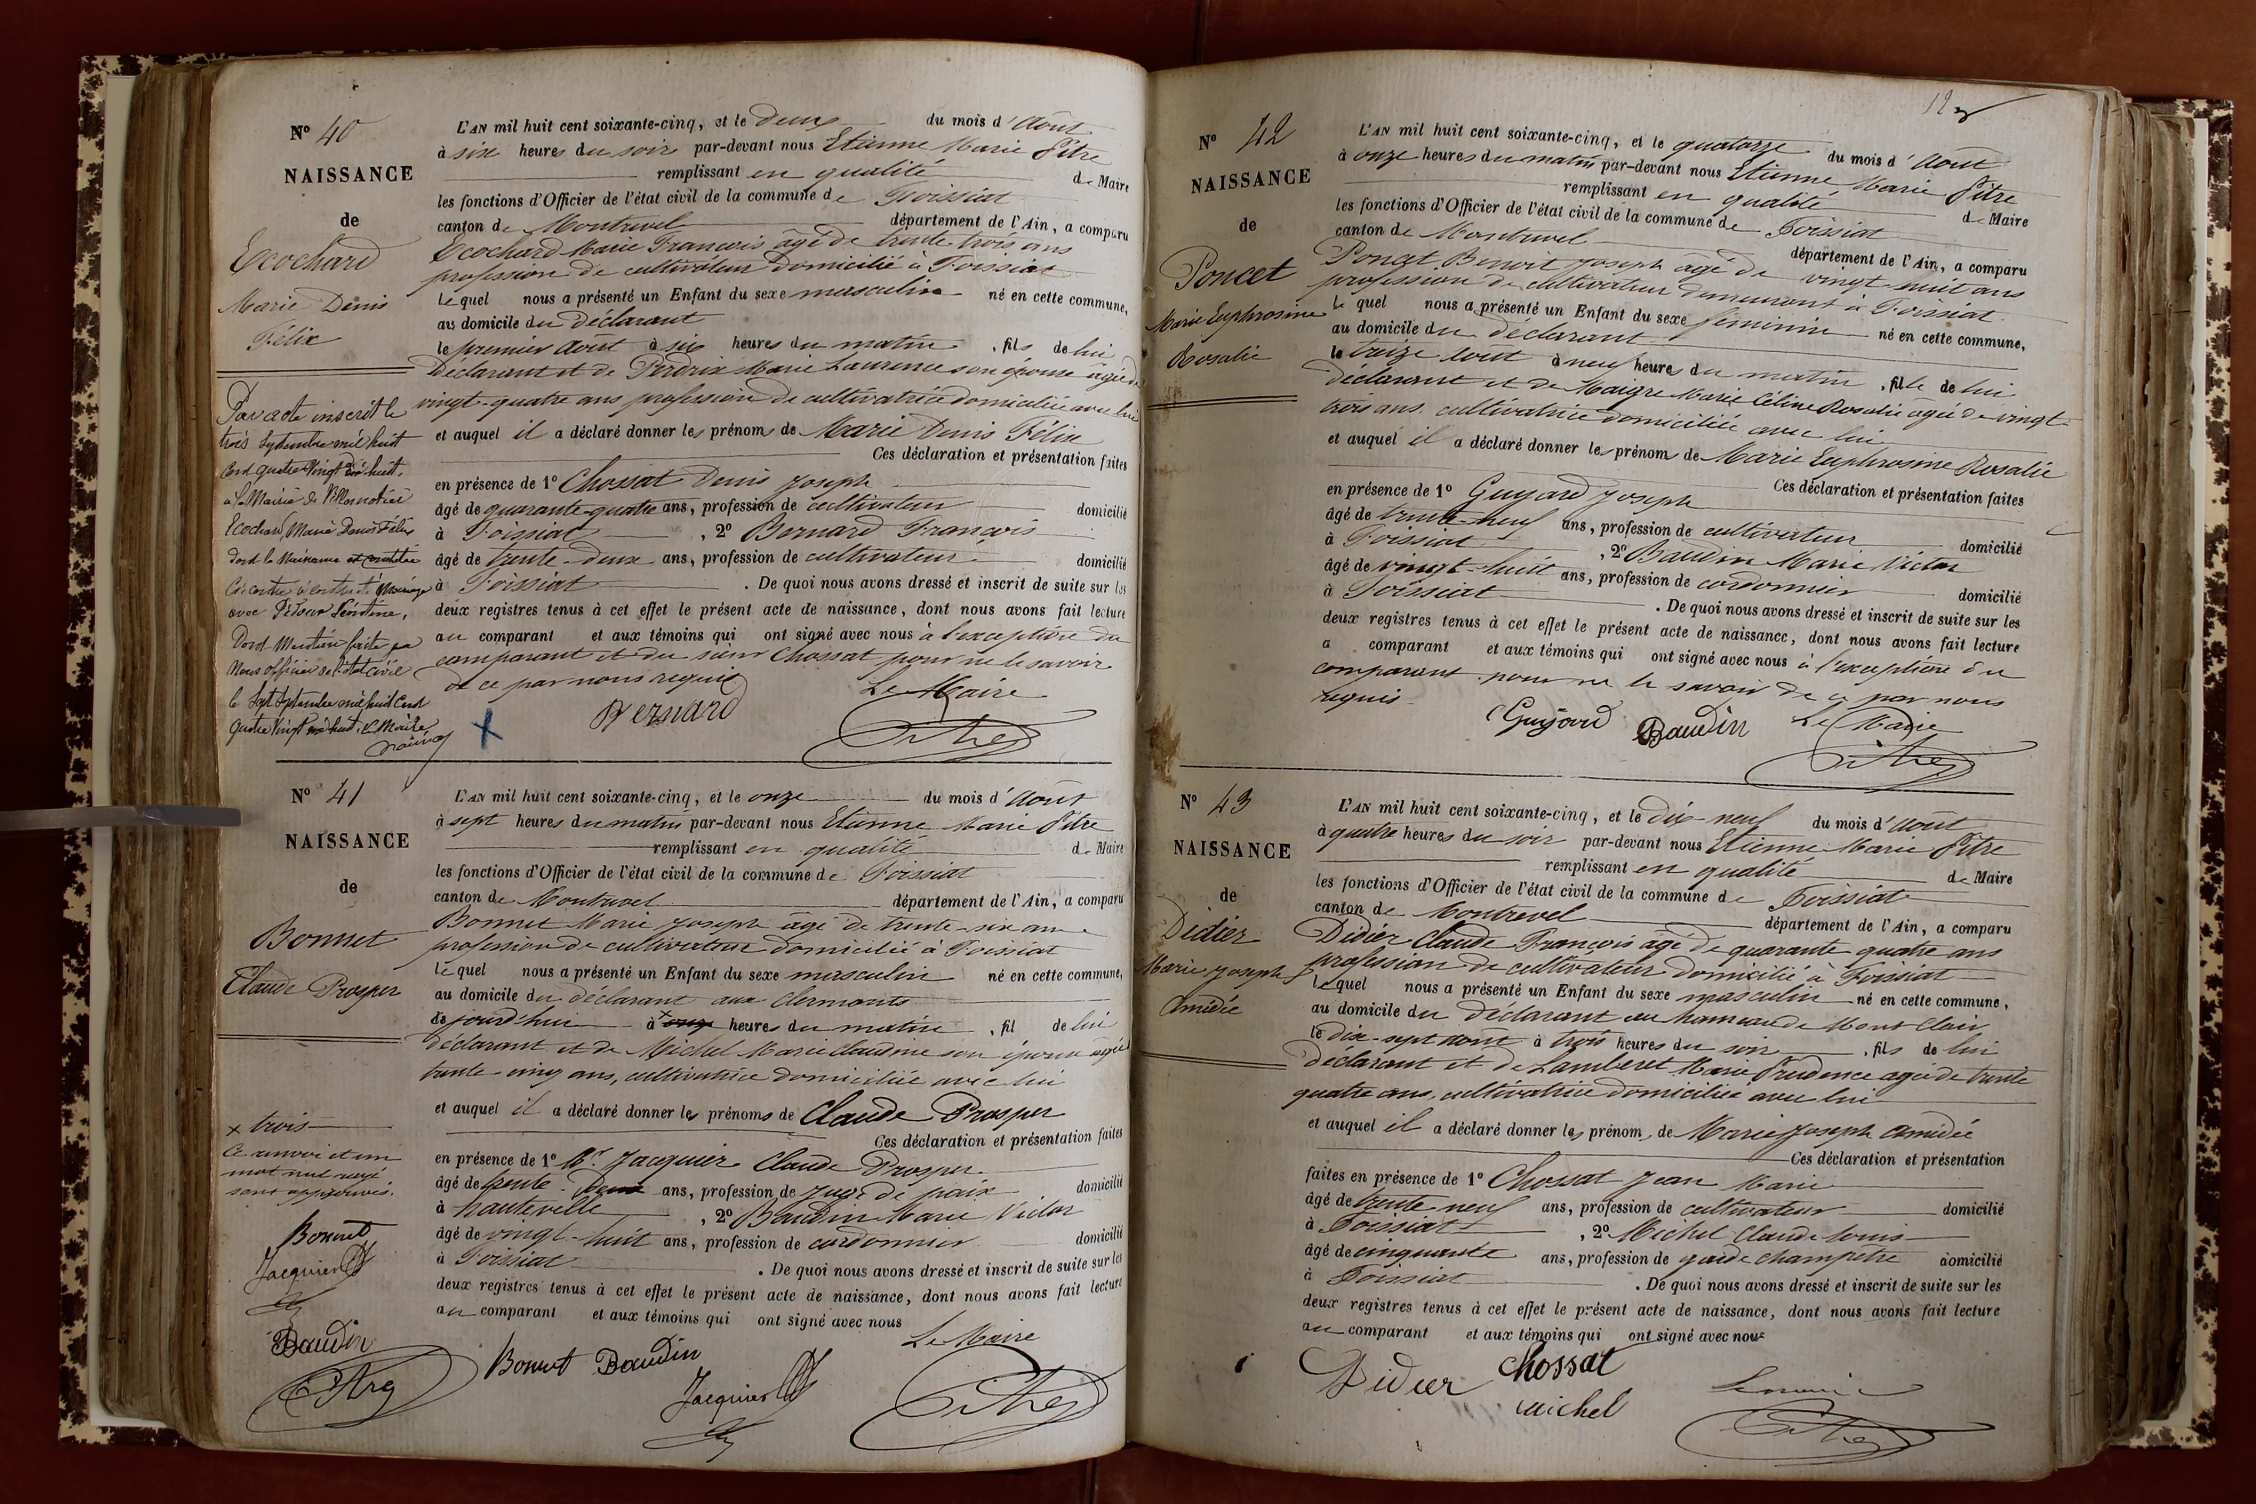 N° 40
NAISSANCE
de
Ecochard
Marie Denis
Félix
Par acte inscrit le
trois Septembre mil huit
cent quatre vingt dix huit
a la Mairie de Villemotier
Ecochard Marie Denis Félix
dont la Naissance est constatée
Ci-contre à contracté Mariage
avec
Dont Mention faite par
Nous officier de l'état civil
le Sept Septembre mil huit cent
quatre vingt dix huit. Le Maire
L'AN mil huit cent soixante-cinq, et le deux du mois d'Août
à six heures du soir par-devant nous Etienne Marie Pitre
remplissant en qualité de Maire
les fonctions d'Officier de l'état civil de la commune de Foissiat
canton de Montrevel département de l'Ain, a comparu
Ecochard Marie François âgé de trente trois ans
profession de cultivateur domicilié à Foissiat
Lequel nous a présenté un Enfant du sexe masculin né en cette commune,
au domicile du déclarant
le premier Août à six heures du matin, fils de lui
Déclarant et de Perdrix Marie Laurence son épouse âgée de
vingt-quatre ans profession de cultivatrice domiciliée avec lui
et auquel il a déclaré donner les prénoms de Marie Denis Félix
Ces déclaration et présentation faites
en présence de 1° Chossat Denis Joseph
âgé de quarante-quatre ans, profession de cultivateur domicilié
à Foissiat, 2° Bernard François
âgé de trente-deux ans, profession de cultivateur domicilié
à Foissiat. De quoi nous avons dressé et inscrit de suite sur les
deux registres tenus à cet effet le présent acte de naissance, dont nous avons fait lecture
au comparant et aux témoins qui ont signé avec nous à l'exception du
comparant et du sieur Chossat pour ne le savoir
de ce par nous requis
Le Maire
Bernard
Pitre
N° 41
NAISSANCE
de
Bonnet
Claude Prosper
x trois
Ce renvoi et un
mot nul rayé
sont approuvés.
Bonnet
Jacquier
Baudin
Pitre
L'AN mil huit cent soixante-cinq, et le onze du mois d'Août
à sept heures du matin par-devant nous Etienne Marie Pitre
remplissant en qualité de Maire
les fonctions d'Officier de l'état civil de la commune de Foissiat
canton de Montrevel département de l'Ain, a comparu
Bonnet Marie Joseph âgé de trente-six ans
profession de cultivateur domicilié à Foissiat
Lequel nous a présenté un Enfant du sexe masculin né en cette commune,
au domicile du déclarant aux Clermonts
jourd'hui à x onze heures du matin, fil de lui
déclarant et de Michel Marie Claudine son épouse âgée
trente cinq ans, cultivatrice domiciliée avec lui
et auquel il a déclaré donner les prénoms de Claude Prosper
Ces déclaration et présentation faites
en présence de 1° Mr Jacquier Claude Prosper
âgé de trente deux ans, profession de juge de paix domicilié
à hauteville, 2° Baudin Marie Victor
âgé de vingt-huit ans, profession de cordonnier domicilié
à Foissiat. De quoi nous avons dressé et inscrit de suite sur les
deux registres tenus à cet effet le présent acte de naissance, dont nous avons fait lecture
au comparant et aux témoins qui ont signé avec nous
Le Maire
Bonnet Baudin
Jacquier
Pitre
12
N° 42
NAISSANCE
de
Poncet
Marie Euphrosine
Rosalie
L'AN mil huit cent soixante-cinq, et le quatorze du mois d'Août
à onze heures du matin par-devant nous Etienne Marie Pitre
remplissant en qualité de Maire
les fonctions d'Officier de l'état civil de la commune de Foissiat
canton de Montrevel département de l'Ain, a comparu
Poncet Benoit Joseph âgé de vingt-huit ans
profession de cultivateur demeurant à Foissiat
Lequel nous a présenté un Enfant du sexe féminin né en cette commune,
au domicile du déclarant
le treize Août à neuf heures du matin, fille de lui
déclarant et de Maigre Marie Céline Rosalie âgée de vingt-
trois ans cultivatrice domiciliée avec lui
et auquel il a déclaré donner les prénoms de Marie Euphrosine Rosalie
Ces déclaration et présentation faites
en présence de 1° Guyard Joseph
âgé de trente-neuf ans, profession de cultivateur domicilié
à Foissiat, 2° Baudin Marie Victor
âgé de vingt-huit ans, profession de cordonnier domicilié
à Foissiat. De quoi nous avons dressé et inscrit de suite sur les
deux registres tenus à cet effet le présent acte de naissance, dont nous avons fait lecture
a comparant et aux témoins qui ont signé avec nous à l'exception du
comparant pour ne le savoir de ce par nous
requis
Guyard Baudin Le Maire
Pitre
N° 43
NAISSANCE
de
Didier
Marie Joseph
Amédée
L'AN mil huit cent soixante-cinq, et le dix-neuf du mois d'Août
à quatre heures du soir par-devant nous Etienne Marie Pitre
remplissant en qualité de Maire
les fonctions d'Officier de l'état civil de la commune de Foissiat
canton de Montrevel département de l'Ain, a comparu
Didier Claude François âgé de quarante quatre ans
profession de cultivateur domicilié à Foissiat
Lequel nous a présenté un Enfant du sexe masculin né en cette commune,
au domicile du déclarant au hameau de Mont Clair
le dix-sept Août à trois heures du soir, fils de lui
déclarant et de Lamberet Marie Prudence agée de trente
quatre ans, cultivatrice domiciliée avec lui
et auquel il a déclaré donner les prénom de Marie Joseph Amédée
Ces déclaration et présentation
faites en présence de 1° Chossat Jean Marie
âgé de trente neuf ans, profession de cultivateur domicilié
à Foissiat, 2° Michel Claude Louis
âgé de cinquante ans, profession de garde champêtre domicilié
à Foissiat. De quoi nous avons dressé et inscrit de suite sur les
deux registres tenus à cet effet le présent acte de naissance, dont nous avons fait lecture
au comparant et aux témoins qui ont signé avec nous
Didier Chossat Le maire
Michel
Pitre